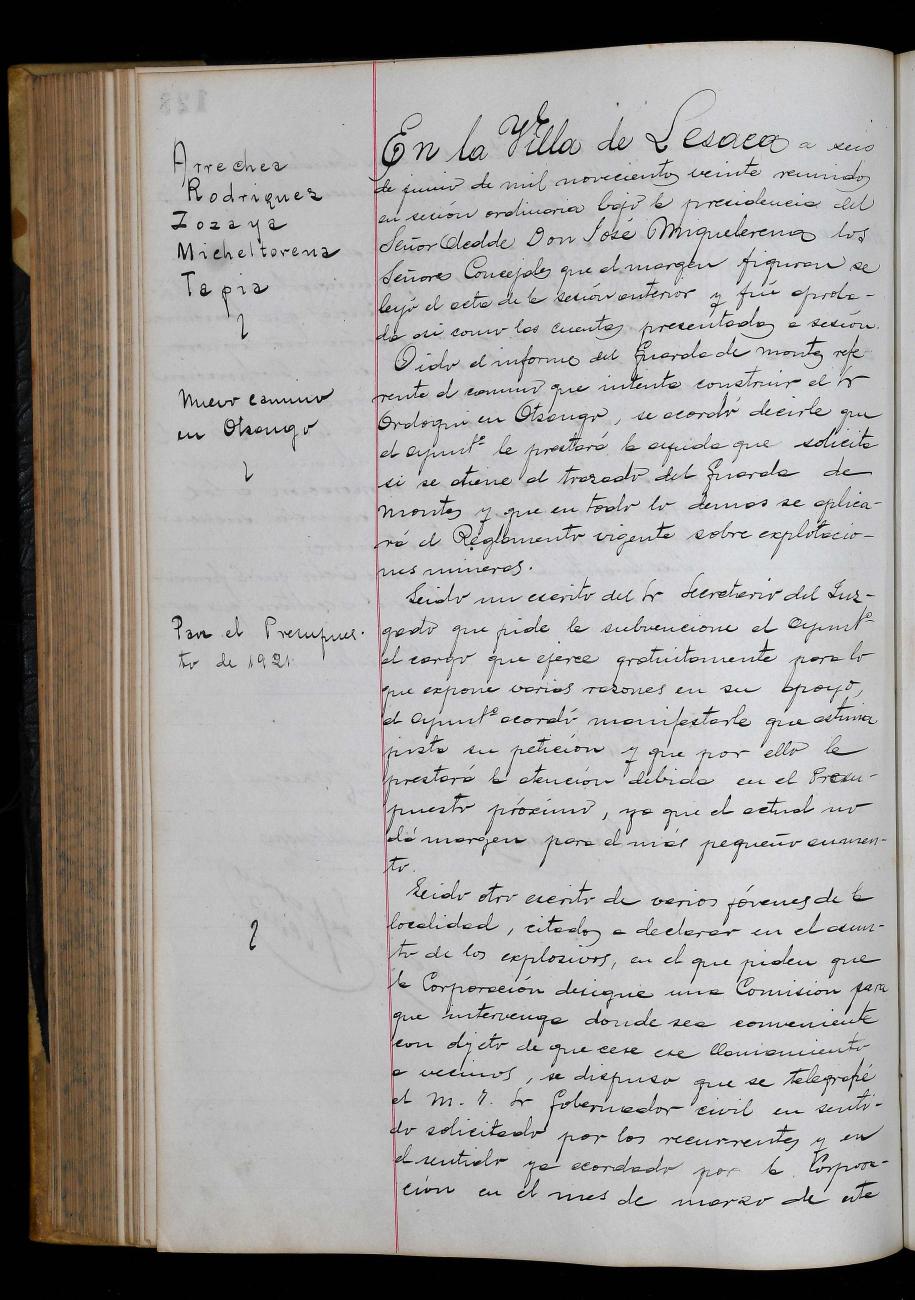 Arrechea
Rodriguez
Zozaya
Micheltorena
Tapia
Nuevo camino
en Otsango
Para el Presupues-
to de 1921
En la Villa de Lesaca a seis
de junio de mil novecientos veinte reunidos
en sesión ordinaria bajo la presidencia del
Señor Alcalde Don José Miquelerena los
Señores Concejales que al margen figuran se
leyó el acta de la sesión anterior y fué aproba-
da asi como las cuentas presentadas a sesión.
Oido el informe del Guarda de montes refe-
rente al camino que intenta construir el Sr
Ordoqui en Otsango, se acordó decirle que
el Ayuntº le prestará la ayuda que solicita
si se atiene al trazado del Guarda de
montes y que en todo lo demas se aplica-
rá el Reglamento vigente sobre explotacio-
nes mineras.
Leido un escrito del Sr Secretario del Juz-
gado que pide le subvencione el Ayuntº
el cargo que ejerce gratuitamente para lo
que expone varias razones en su apoyo,
el Ayuntº acordó manifestarle que estima
justa su petición y que por ello le
prestará la atención debida en el Presu-
puesto próximo, ya que el actual no
dá margen para el más pequeño aumen-
to.
Leido otro escrito de varios jóvenes de la
localidad, citados a declarar en el asun-
to de los explosivos, en el que piden que
la Corporación designe una Comision para
que intervenga donde sea conveniente
con objeto de que cese ese llamamiento
a vecinos, se dispuso que se telegrafíe
al M. I. Sr Gobernador civil en senti-
do solicitado por los recurrentes y en
el sentido ya acordado por la Corpora-
ción en el mes de marzo de este